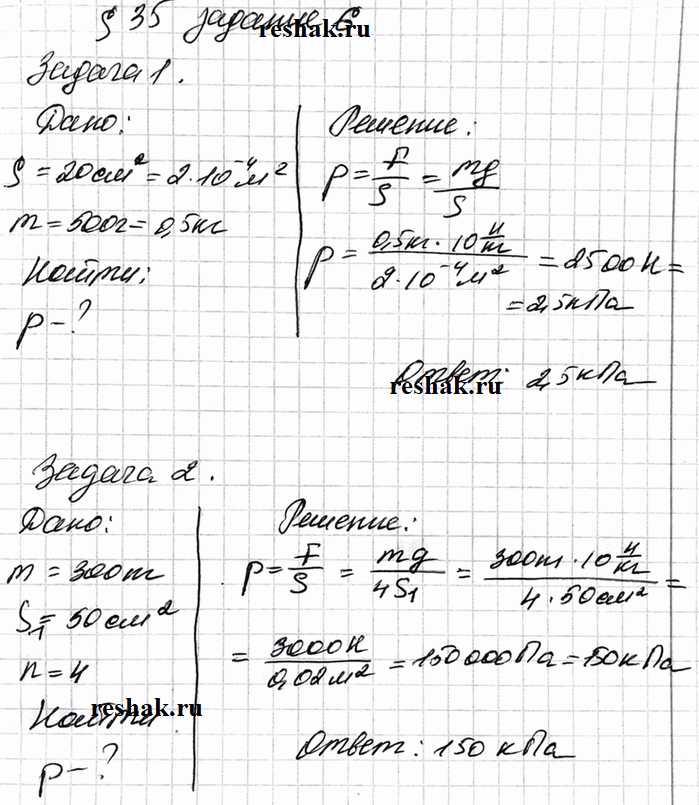 § 35 задание 6
reshak.ru
Задача 1.
Дано:
S = 20см² = 2·10⁻⁴м²
m = 500г = 0,5кг
Найти:
p - ?
Решение:
p = F/S = mg/S
p = 0,5кг · 10 Н/кг / 2·10⁻⁴м² = 2500Н =
= 2,5кПа
Ответ: 2,5кПа
reshak.ru
Задача 2.
Дано:
m = 300т
S₁ = 50см²
n = 4
Найти
reshak.ru
p - ?
Решение:
p = F/S = mg/4S₁ = 300т · 10 Н/кг / 4·50см² =
= 3000Н / 0,02м² = 150000Па = 150кПа
Ответ: 150 кПа